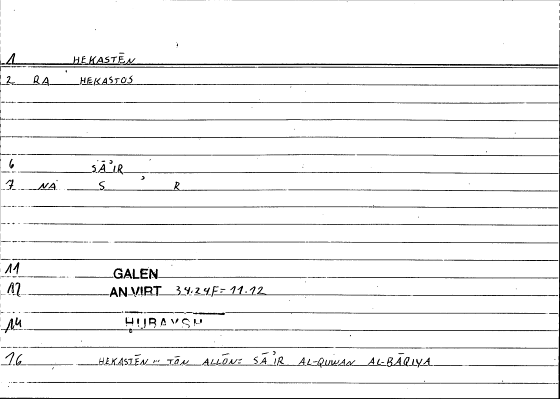 1 HEKASTĒN
2 RA HEKASTOS
6 SĀʾIR
7 NA S ʾ R
11 GALEN
12 AN.VIRT 34.24F= 11.12
14 ḤUBAYSH
16 HEKASTĒN ... TŌN ALLŌN= SĀʾIR AL-QUWAN AL-BĀQIYA